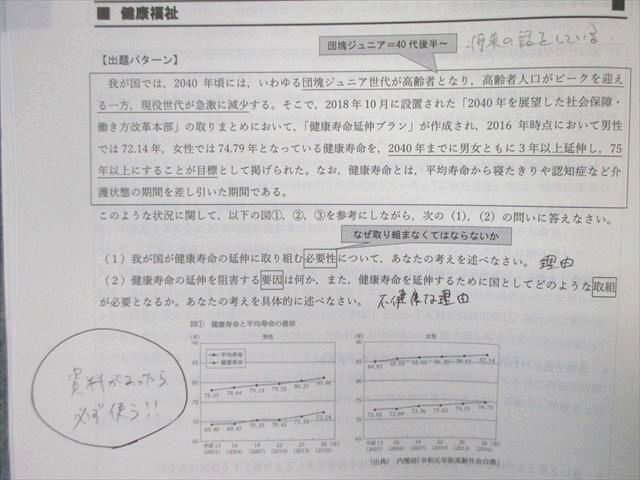 ■ 健康福祉
団塊ジュニア＝40代後半～
将来の話をしている
【出題パターン】
我が国では，2040 年頃には，いわゆる団塊ジュニア世代が高齢者となり，高齢者人口がピークを迎え
る一方，現役世代が急激に減少する。そこで，2018 年 10 月に設置された「2040 年を展望した社会保障・
働き方改革本部」の取りまとめにおいて，「健康寿命延伸プラン」が作成され，2016 年時点において男性
では 72.14 年，女性では 74.79 年となっている健康寿命を，2040 年までに男女ともに３年以上延伸し，75
年以上にすることが目標として掲げられた。なお，健康寿命とは，平均寿命から寝たきりや認知症など介
護状態の期間を差し引いた期間である。
このような状況に関して，以下の図①，②，③を参考にしながら，次の（1），（2）の問いに答えなさい。
なぜ取り組まなくてはならないか
（1）我が国が健康寿命の延伸に取り組む必要性について，あなたの考えを述べなさい。 理由
（2）健康寿命の延伸を阻害する要因は何か，また，健康寿命を延伸するために国としてどのような取組
が必要となるか。あなたの考えを具体的に述べなさい。 不健康な理由
図① 健康寿命と平均寿命の推移
資料があったら
必ず使う!!
男性
（年）
平均寿命
健康寿命
78.07 78.64 79.19 79.55 80.21 80.98
69.40 69.47 70.33 70.42 71.19 72.14
平成13 16 19 22 25 28（年）
(2001) (2004) (2007) (2010) (2013) (2016)
女性
（年）
84.93 85.59 85.99 86.30 86.61 87.14
72.65 72.69 73.36 73.62 74.21 74.79
平成13 16 19 22 25 28（年）
(2001) (2004) (2007) (2010) (2013) (2016)
（出典） 内閣府「令和元年版高齢社会白書」